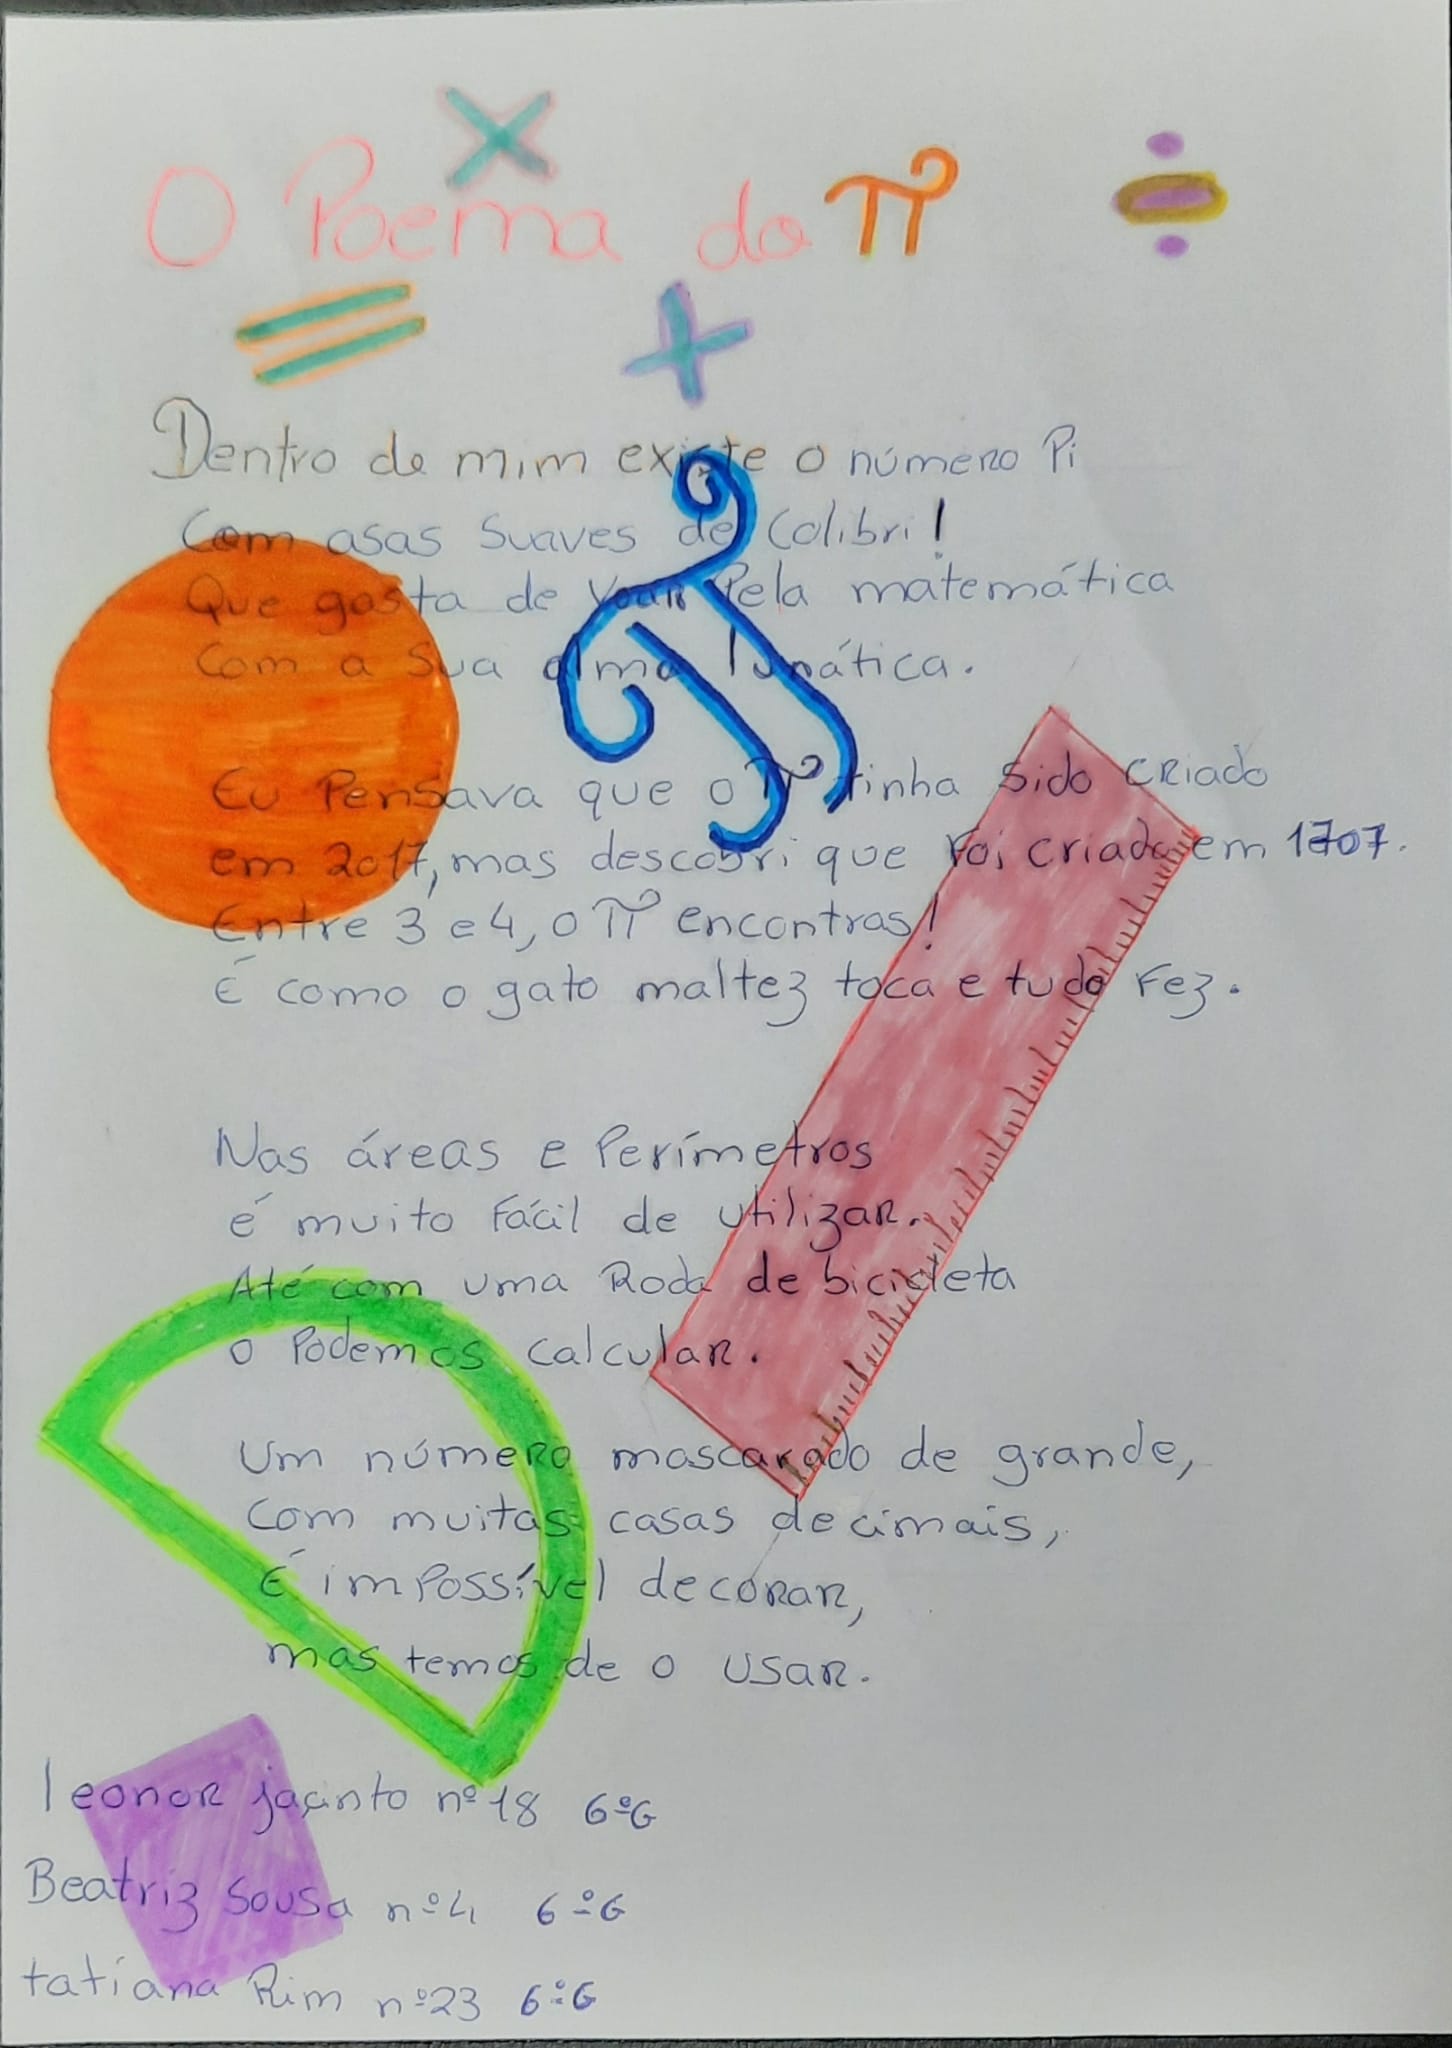 O Poema do π
Dentro de mim existe o número Pi
Com asas suaves de colibri!
Que gosta de voar pela matemática
Com a sua alma lunática.
Eu pensava que o π tinha sido criado
em 2017, mas descobri que foi criado em 1707.
Entre 3 e 4, o π encontras!
É como o gato maltez toca e tudo fez.
Nas áreas e perímetros
é muito fácil de utilizar.
Até com uma roda de bicicleta
o podemos calcular.
Um número mascarado de grande,
com muitas casas decimais,
É impossível decorar,
mas temos de o usar.
leonor jacinto nº 18 6ºG
Beatriz Sousa nº 4 6ºG
tatiana Rim nº 23 6ºG